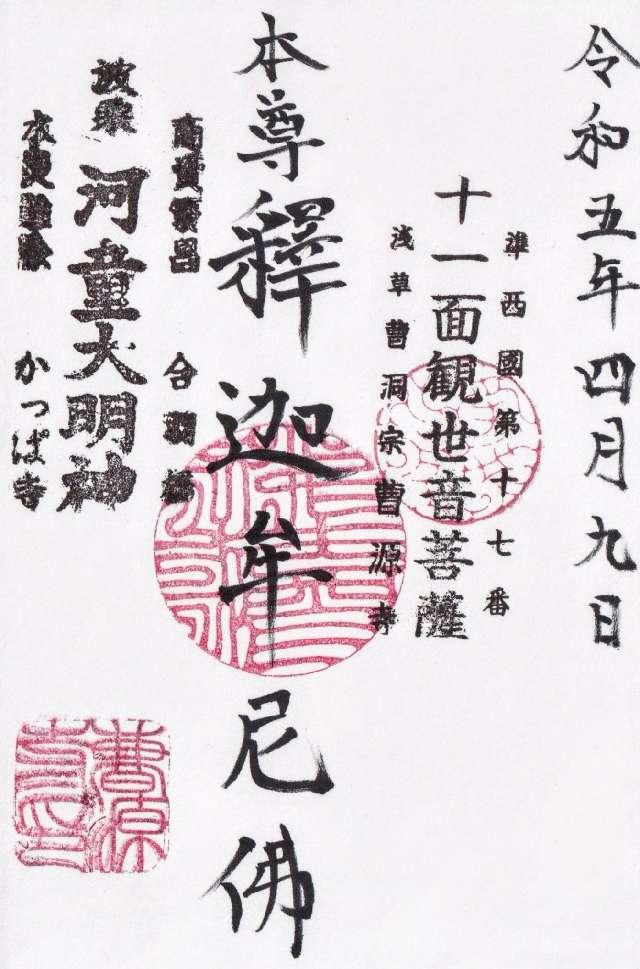 令和五年四月九日
準西國第十七番
十一面観世音菩薩
浅草曹洞宗曹源寺
本尊釋迦牟尼佛
商賣繁昌 合羽橋
波乗 河童大明神
かっぱ寺
曹源
寺印